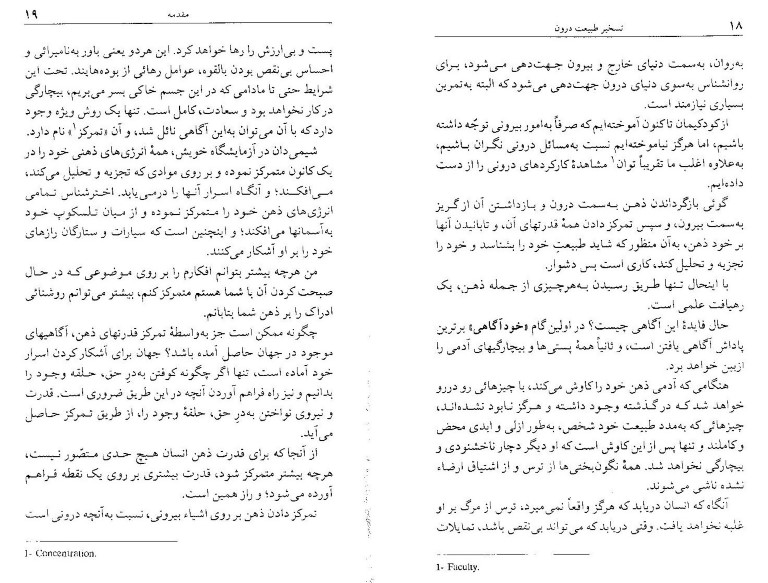 ۱۸
تسخیر طبیعت درون
به‌روان، به‌سمت دنیای خارج و بیرون جهت‌دهی می‌شود، برای
روانشناس به‌سوی دنیای درون جهت‌دهی می‌شود که البته به‌تمرین
بسیاری نیازمند است.
ازکودکیمان تاکنون آموخته‌ایم که صرفاً به‌امور بیرونی توجّه داشته
باشیم، اما هرگز نیاموخته‌ایم نسبت به‌مسائل درونی نگران باشیم،
به‌علاوه اغلب ما تقریباً توان۱ مشاهدهٔ کارکردهای درونی را از دست
داده‌ایم.
گوئی بازگرداندن ذهن به‌سمت درون و بازداشتن آن از گریز
به‌سمت بیرون، و سپس تمرکز دادن همهٔ قدرتهای آن، و تابانیدن آنها
بر خود ذهن، به‌آن منظور که شاید طبیعتِ خود را بشناسد و خود را
تجزیه و تحلیل کند، کاری است بس دشوار.
با اینحال تنها طریق رسیدن به‌هرچیزی از جمله ذهن، یک
رهیافت علمی است.
حال فایدهٔ این آگاهی چیست؟ در اولین گام «خودآگاهی» برترین
پاداش آگاهی یافتن است، و ثانیاً همهٔ پستی‌ها و بیچارگیهای آدمی را
ازبین خواهد برد.
هنگامی که آدمی ذهن خود را کاوش می‌کند، با چیزهائی رو دررو
خواهد شد که در گذشته وجود داشته و هرگز نابود نشده‌اند،
چیزهائی که به‌مدد طبیعت خود شخص، به‌طور ازلی و ابدی محض
و کاملند و تنها پس از این کاوش است که او دیگر دچار ناخشنودی و
بیچارگی نخواهد شد. همهٔ نگون‌بختی‌ها از ترس و از اشتیاق ارضاء
نشده ناشی می‌شوند.
آنگاه که انسان دریابد که هرگز واقعاً نمی‌میرد، ترس از مرگ بر او
غلبه نخواهد یافت. وقتی دریابد که می‌تواند بی‌نقص باشد، تمایلات
1- Faculty.
مقدمه
۱۹
پست و بی‌ارزش را رها خواهد کرد. این هردو یعنی باور به‌نامیرائی و
احساس بی‌نقص بودن بالقوه، عوامل رهائی از بوده‌هایند. تحت این
شرایط حتی تا مادامی که در این جسم خاکی بسر می‌بریم، بیچارگی
درکار نخواهد بود و سعادت، کامل است. تنها یک روش ویژه وجود
دارد که با آن می‌توان به‌این آگاهی نائل شد، و آن «تمرکز۱» نام دارد.
شیمی‌دان در آزمایشگاه خویش، همهٔ انرژی‌های ذهنی خود را در
یک کانون متمرکز نموده و بر روی موادی که تجزیه و تحلیل می‌کند،
می‌افکند؛ و آنگاه اسرار آنها را درمی‌یابد. اخترشناس تمامی
انرژی‌های ذهن خود را متمرکز نموده و از میان تلسکوپ خود
به‌آسمانها می‌افکند؛ و اینچنین است که سیارات و ستارگان رازهای
خود را بر او آشکار می‌کنند.
من هرچه بیشتر بتوانم افکارم را بر روی موضوعی که در حال
صحبت کردن آن با شما هستم متمرکز کنم، بیشتر می‌توانم روشنائی
ادراک را بر ذهن شما بتابانم.
چگونه ممکن است جز به‌واسطهٔ تمرکز قدرتهای ذهن، آگاهیهای
موجود در جهان حاصل آمده باشد؟ جهان برای آشکار کردن اسرار
خود آماده است، تنها اگر چگونه کوفتن به‌درِ حق، حلقه وجود را
بدانیم و نیز راه فراهم آوردن آنچه در این طریق ضروری است. قدرت
و نیروی نواختن به‌درِ حق، حلقهٔ وجود را، از طریق تمرکز حاصل
می‌آید.
از آنجا که برای قدرت ذهن انسان هیچ حدی متصّور نیست،
هرچه بیشتر متمرکز شود، قدرت بیشتری بر روی یک نقطه فراهم
آورده می‌شود؛ و راز همین است.
تمرکز دادن ذهن بر روی اشیاء بیرونی، نسبت به‌آنچه درونی است
1- Concentration.